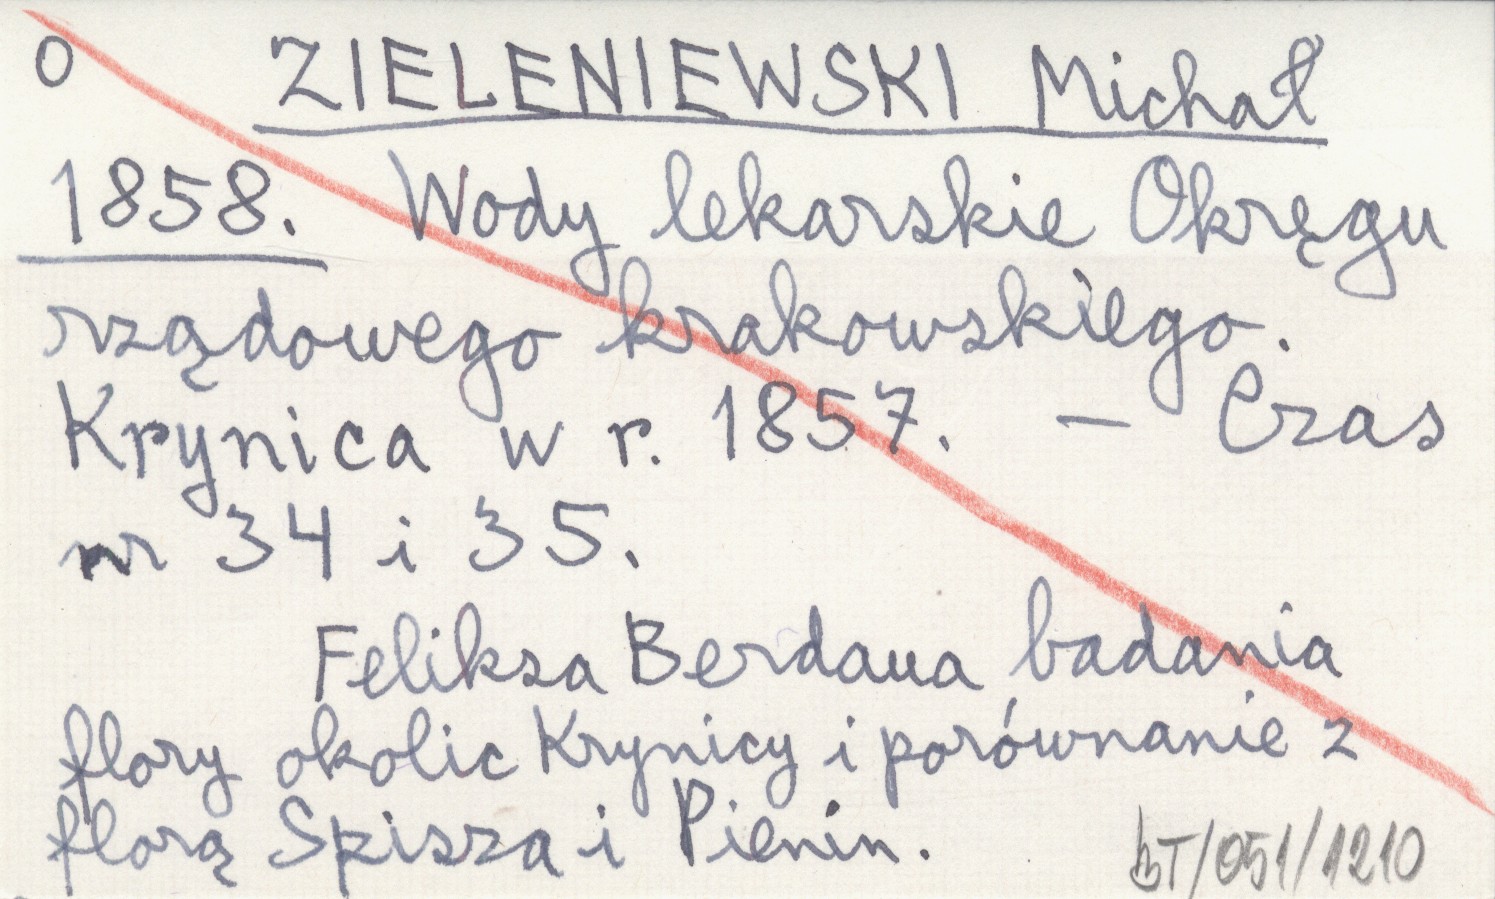 O ZIELENIEWSKI Michał
1858. Wody lekarskie Okręgu
rządowego krakowskiego.
Krynica w r. 1857. — Czas
nr 34 i 35.
Feliksa Berdaua badania
flory okolic Krynicy i porównanie z
florą Spisza i Pienin.
bT/051/1210